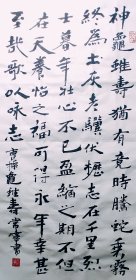 神龜雖壽猶有竟時騰蛇乘霧
終為土灰老驥伏櫪志在千里烈
士暮年壯心不已盈縮之期不但
在天養怡之福可得永年幸甚
至哉歌以咏志 曹操龜雖壽